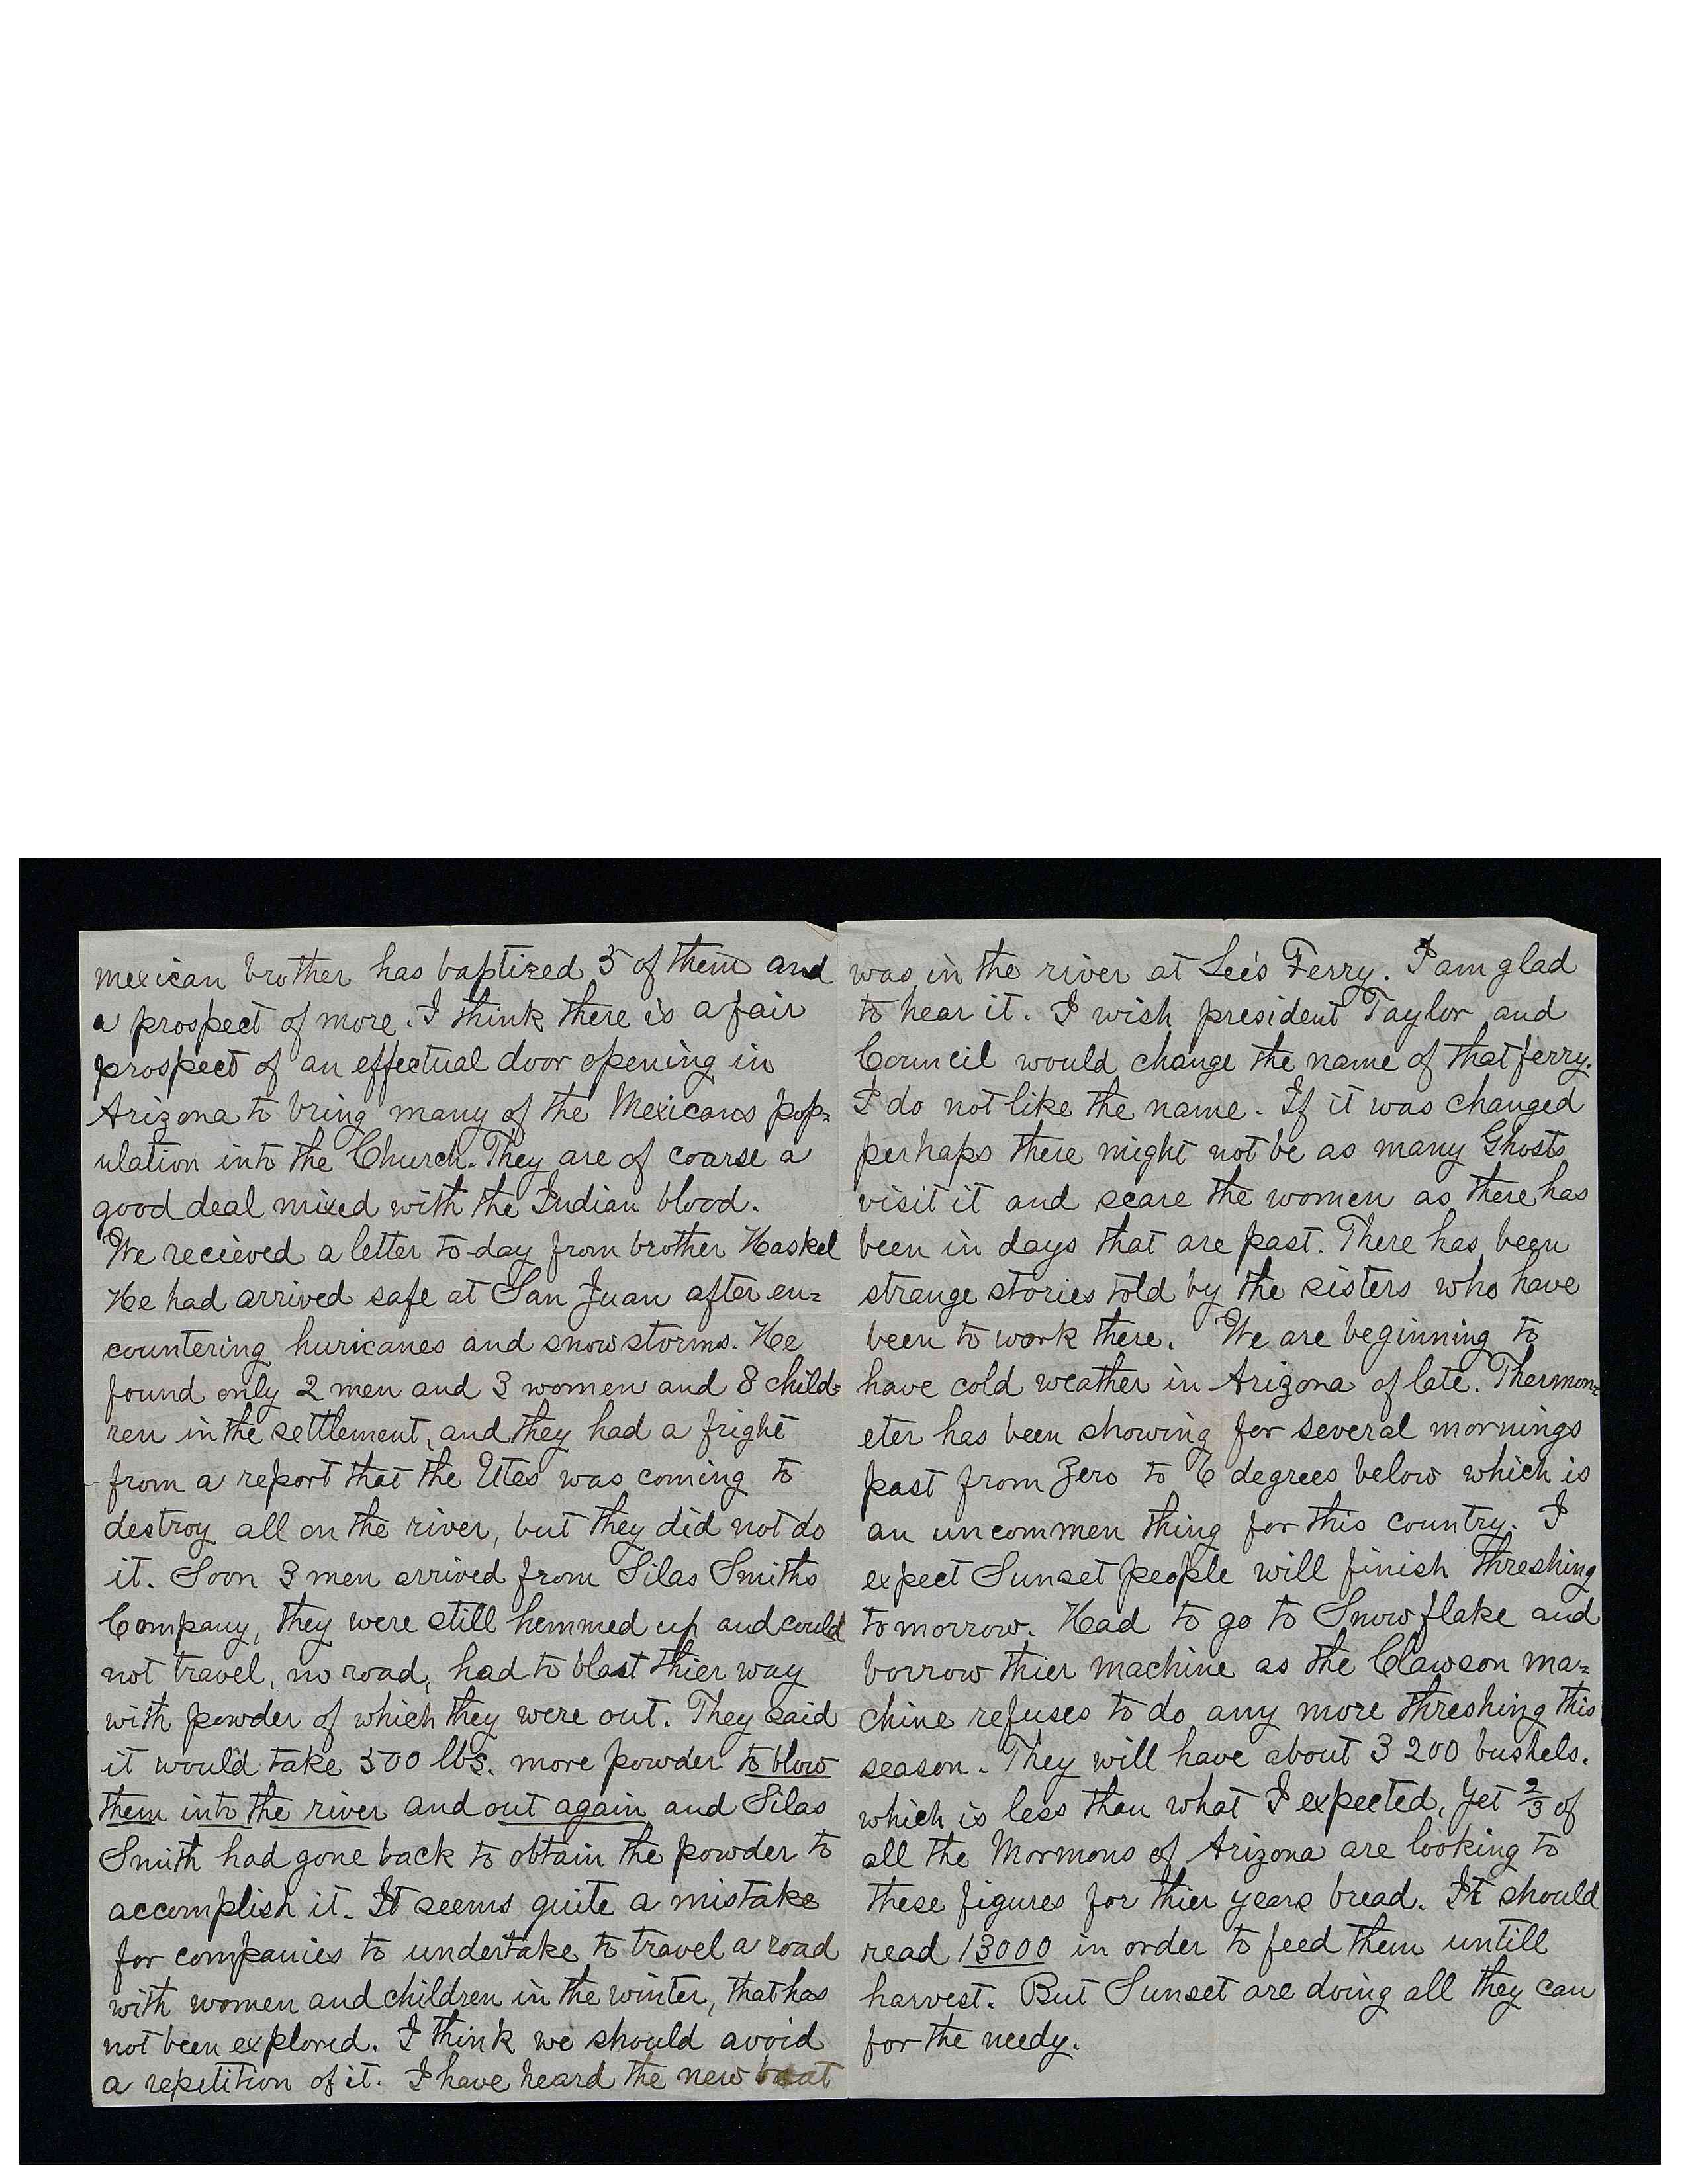 mexican brother has baptized 5 of them and
a prospect of more. I think there is a fair
prospect of an effectual door opening in
Arizona to bring many of the Mexicans pop=
ulation into the Church. They are of coarse a
good deal mixed with the Indian blood.
We recieved a letter to-day from brother Haskel
He had arrived safe at San Juan after en=
countering huricanes and snow storms. He
found only 2 men and 3 women and 8 child=
ren in the settlement, and they had a fright
from a report that the Utes was coming to
destroy all on the river, but they did not do
it. Soon 3 men arrived from Silas Smiths
Company, they were still hemmed up and could
not travel, no road, had to blast thier way
with powder of which they were out. They said
it would take 500 lbs. more powder to blow
them into the river and out again and Silas
Smith had gone back to obtain the powder to
accomplish it. It seems quite a mistake
for companies to undertake to travel a road
with women and children in the winter, that has
not been explored. I think we should avoid
a repitition of it. I have heard the new boat
was in the river at Lee's Ferry. I am glad
to hear it. I wish president Taylor and
Council would change the name of that ferry.
I do not like the name. If it was changed
perhaps there might not be as many Ghosts
visit it and scare the women as there has
been in days that are past. There has been
strange stories told by the sisters who have
been to work there. We are beginning to
have cold weather in Arizona of late. Thermom=
eter has been showing for several mornings
past from Zero to 6 degrees below which is
an uncommen thing for this country. I
expect Sunset people will finish threshing
tomorrow. Had to go to Snowflake and
borrow thier machine as the Clawson ma=
chine refuses to do any more threshing this
season. They will have about 3200 bushels.
which is less than what I expected, yet 2/3 of
all the Mormons of Arizona are looking to
these figures for thier years bread. It should
read 13000 in order to feed them untill
harvest. But Sunset are doing all they can
for the needy.